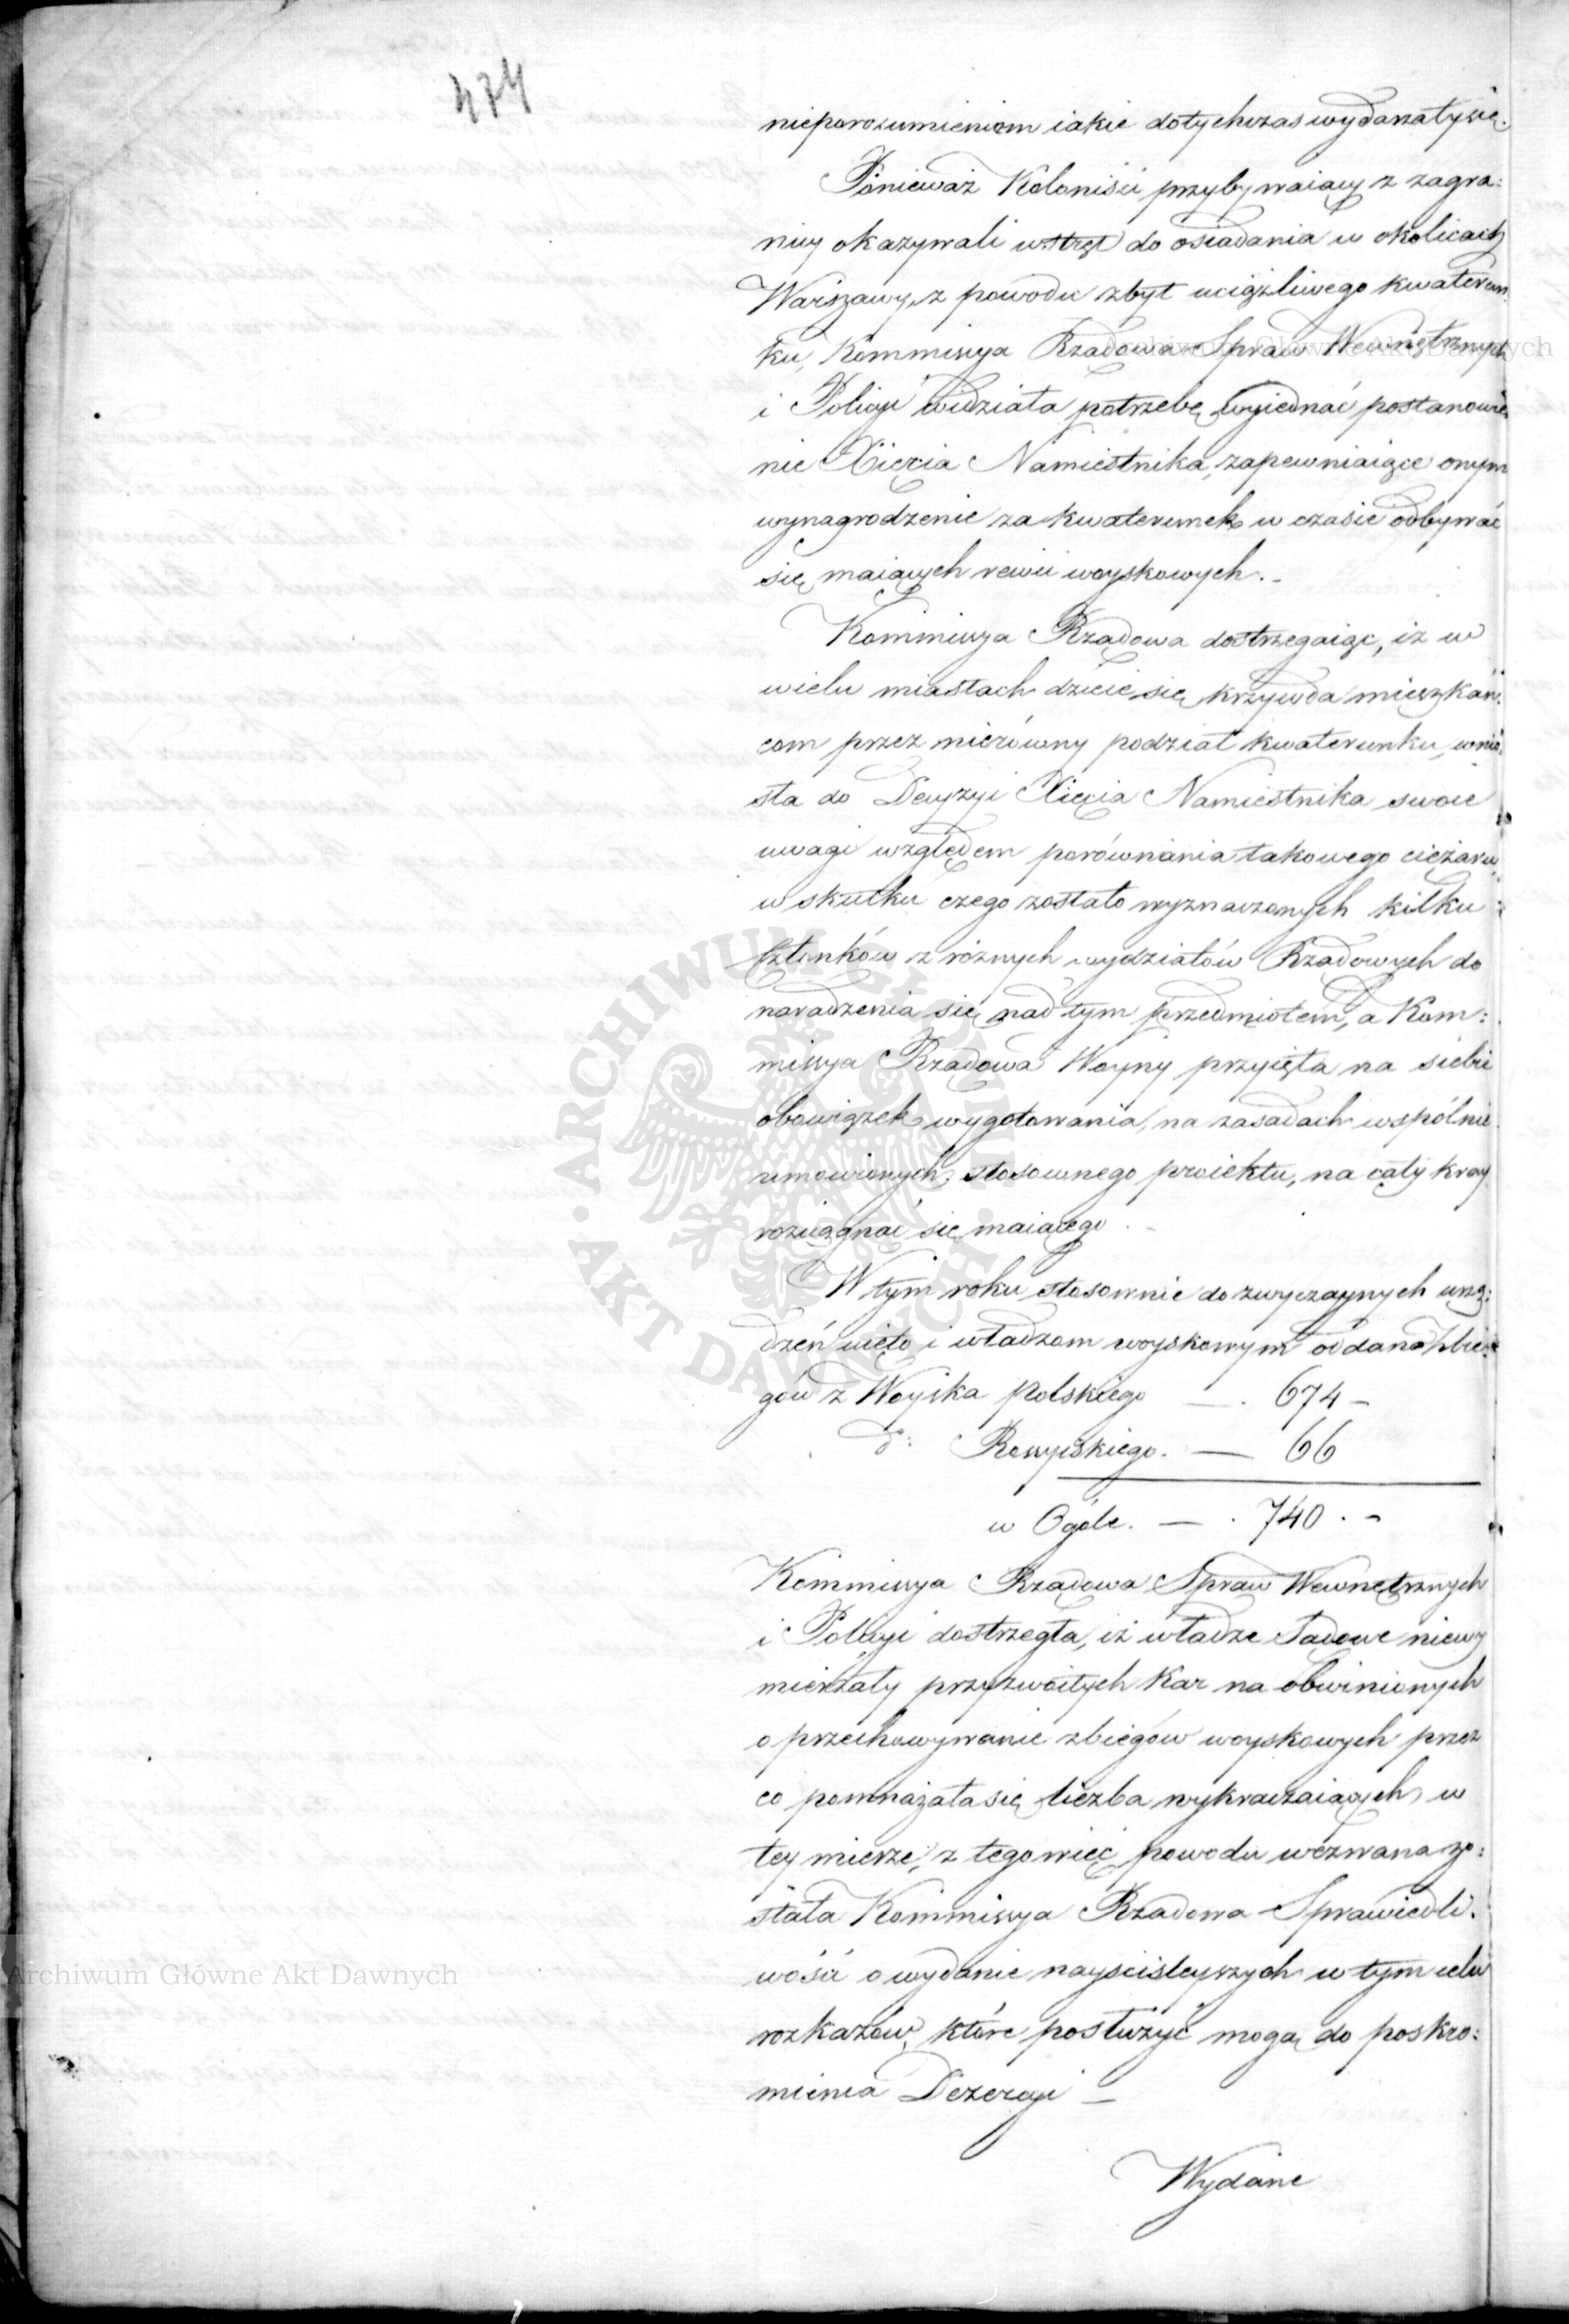 474
nieporozumieniom iakie dotychczas wydarzały się.
Ponieważ Koloniści przybywaiący z zagra:
nicy okazywali wstręt do osiadania w okolicach
Warszawy, z powodu zbyt uciążliwego kwaterun
ku, Kommissya Rządowa Spraw Wewnętrznych
i Policyi widziała potrzebę wyiednać postanowie
nie Xięcia Namiestnika, zapewniaiące onym
wynagrodzenie za kwaterunek w czasie odbywać
się maiących rewii woyskowych. -
Kommissya Rządowa dostrzegaiąc, iż w
wielu miastach dzieie się krzywda mieszkań:
com przez nierówny podział kwaterunku, wnio
sła do Decyzyi Xięcia Namiestnika swoie
uwagi względem porównania takowego ciężaru,
w skutku czego zostało wyznaczonych kilku
członków z różnych wydziałów Rządowych do
naradzenia się nad tym przedmiotem, a Kom:
missya Rządowa Woyny przyięła na siebie
obowiązek wygotowania, na zasadach wspólnie
umowionych, stosownego proiektu, na cały kray
rozciągnąć się maiącego. -
W tym roku stosownie do zwyczaynych urzą:
dzeń uięto i władzom woyskowym oddano zbie:
gów z Woyska Polskiego — . 674 -
d: Rossyiskiego. — 66
w Ogóle. — . 740 . -
Kommissya Rządowa Spraw Wewnętrznych
i Policyi dostrzegła, iż władze Sądowe niewy
mierzały przyzwoitych kar na obwinionych
o przechowywanie zbiegów woyskowych przez
co pomnażała się liczba wykraczaiących w
tey mierze, z tego więc powodu wezwana zo:
stała Kommissya Rządowa Sprawiedli:
wości o wydanie nayściśleyszych w tym celu
rozkazów, które posłużyć mogą do poskro:
mienia Dezercyi —
Wydane
Archiwum Główne Akt Dawnych
Archiwum Główne Akt Dawnych
ARCHIWUM GŁÓWNE · AKT DAWNYCH ·